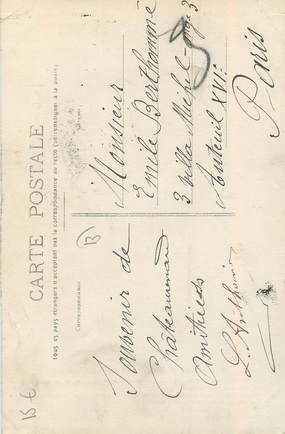 CARTE POSTALE
Tous les pays étrangers n'acceptent pas la correspondance au recto (se renseigner à la poste)
Correspondance
13
Souvenir de
Amitiés
Monsieur
Emile Berthommé
3 villa Michel-Ange 3
Auteuil XVIe
Paris
15 €